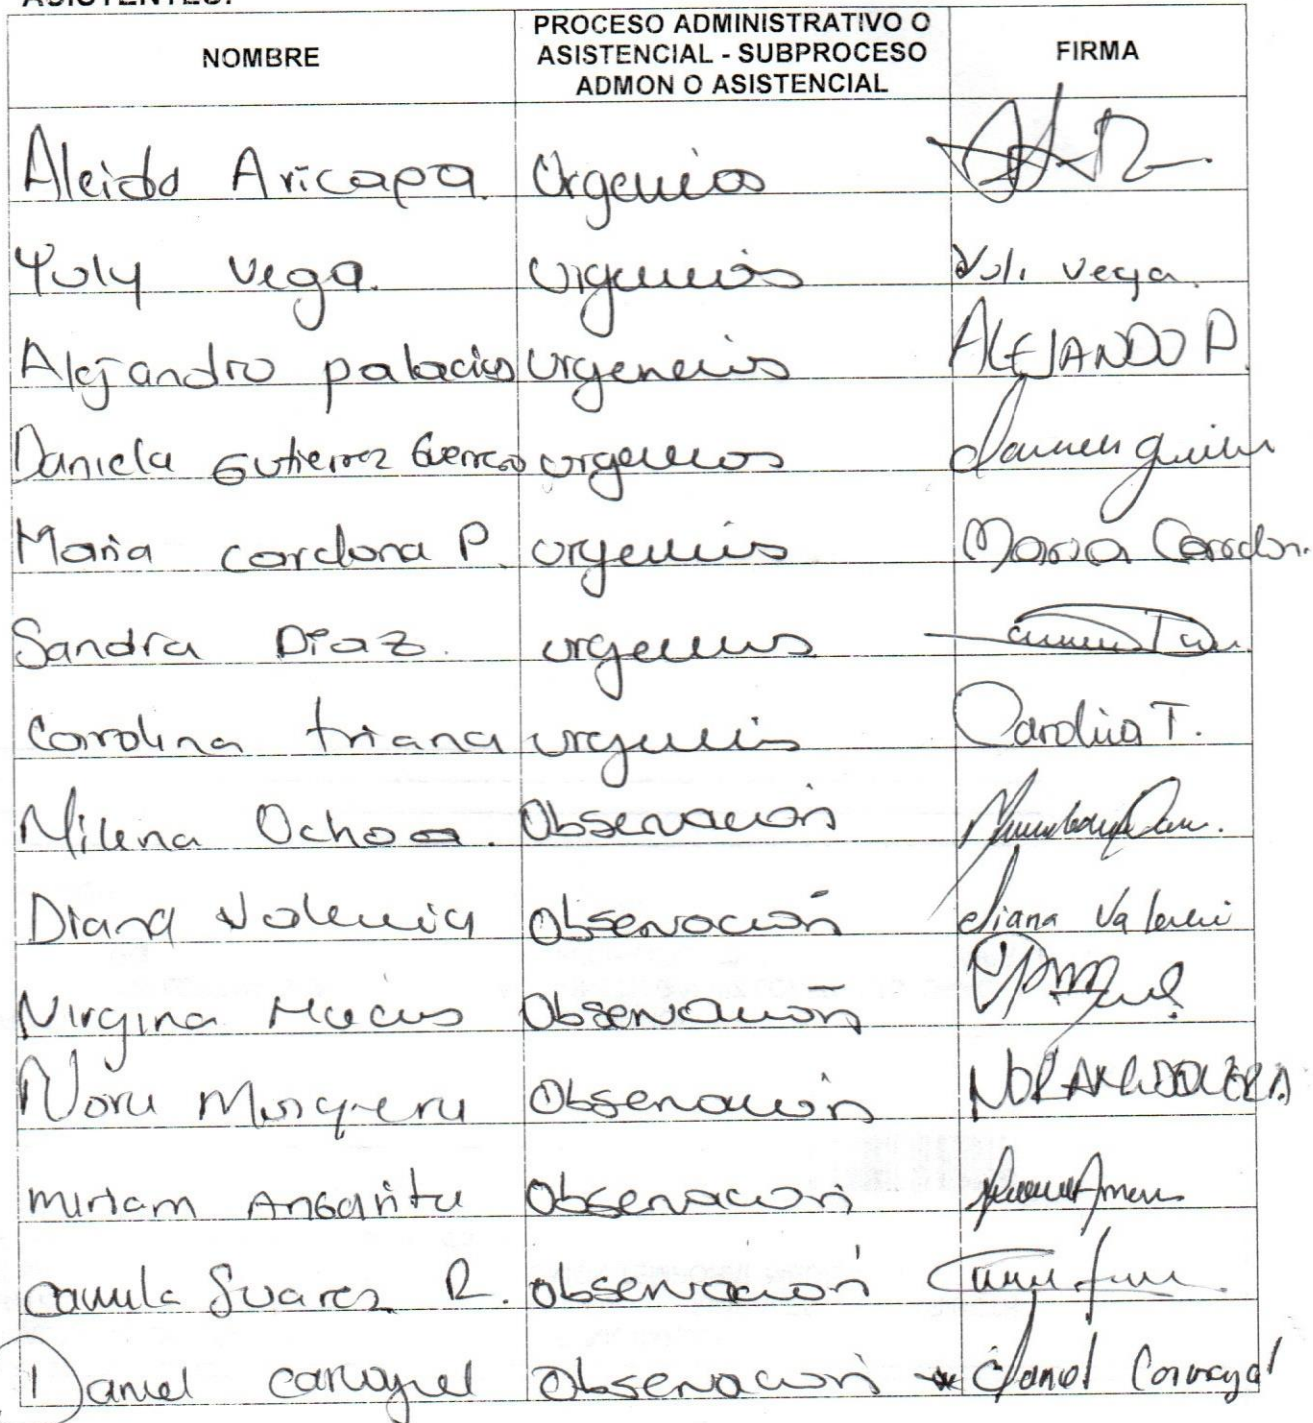 ASISTENTES:
NOMBRE
PROCESO ADMINISTRATIVO O
ASISTENCIAL - SUBPROCESO
ADMON O ASISTENCIAL
FIRMA
Aleida Aricapa. Urgencias
Yuly Vega. Urgencias Yuli Vega.
Alejandro palacios Urgencias ALEJANDO P.
Daniela Gutierrez Guerrero urgencias
Maria cardona P. urgencias Maria Cardon.
Sandra Diaz. urgencias
Carolina triana urgencias Carolina T.
Milena Ochoa. Observación
Diana Valencia Observación diana Valenci
Virgina Macias Observación
Nora Mosquera Observación
miriam Angarita Observación
Camila Suarez R. Observación
Daniel carvajal Observación Daniel Carvajal